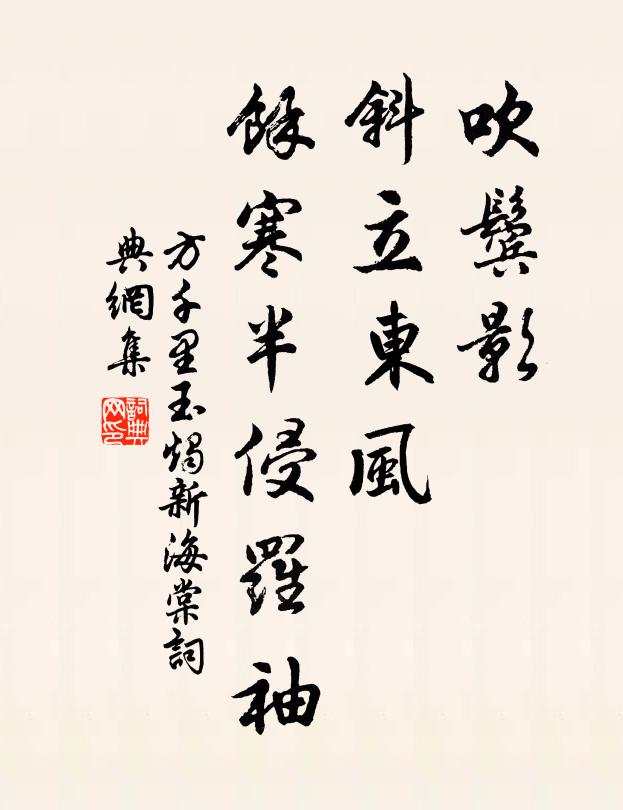 吹鬢影
斜立東風
餘寒半侵羅袖
方千里玉燭新海棠詞
典網集
詞典網印